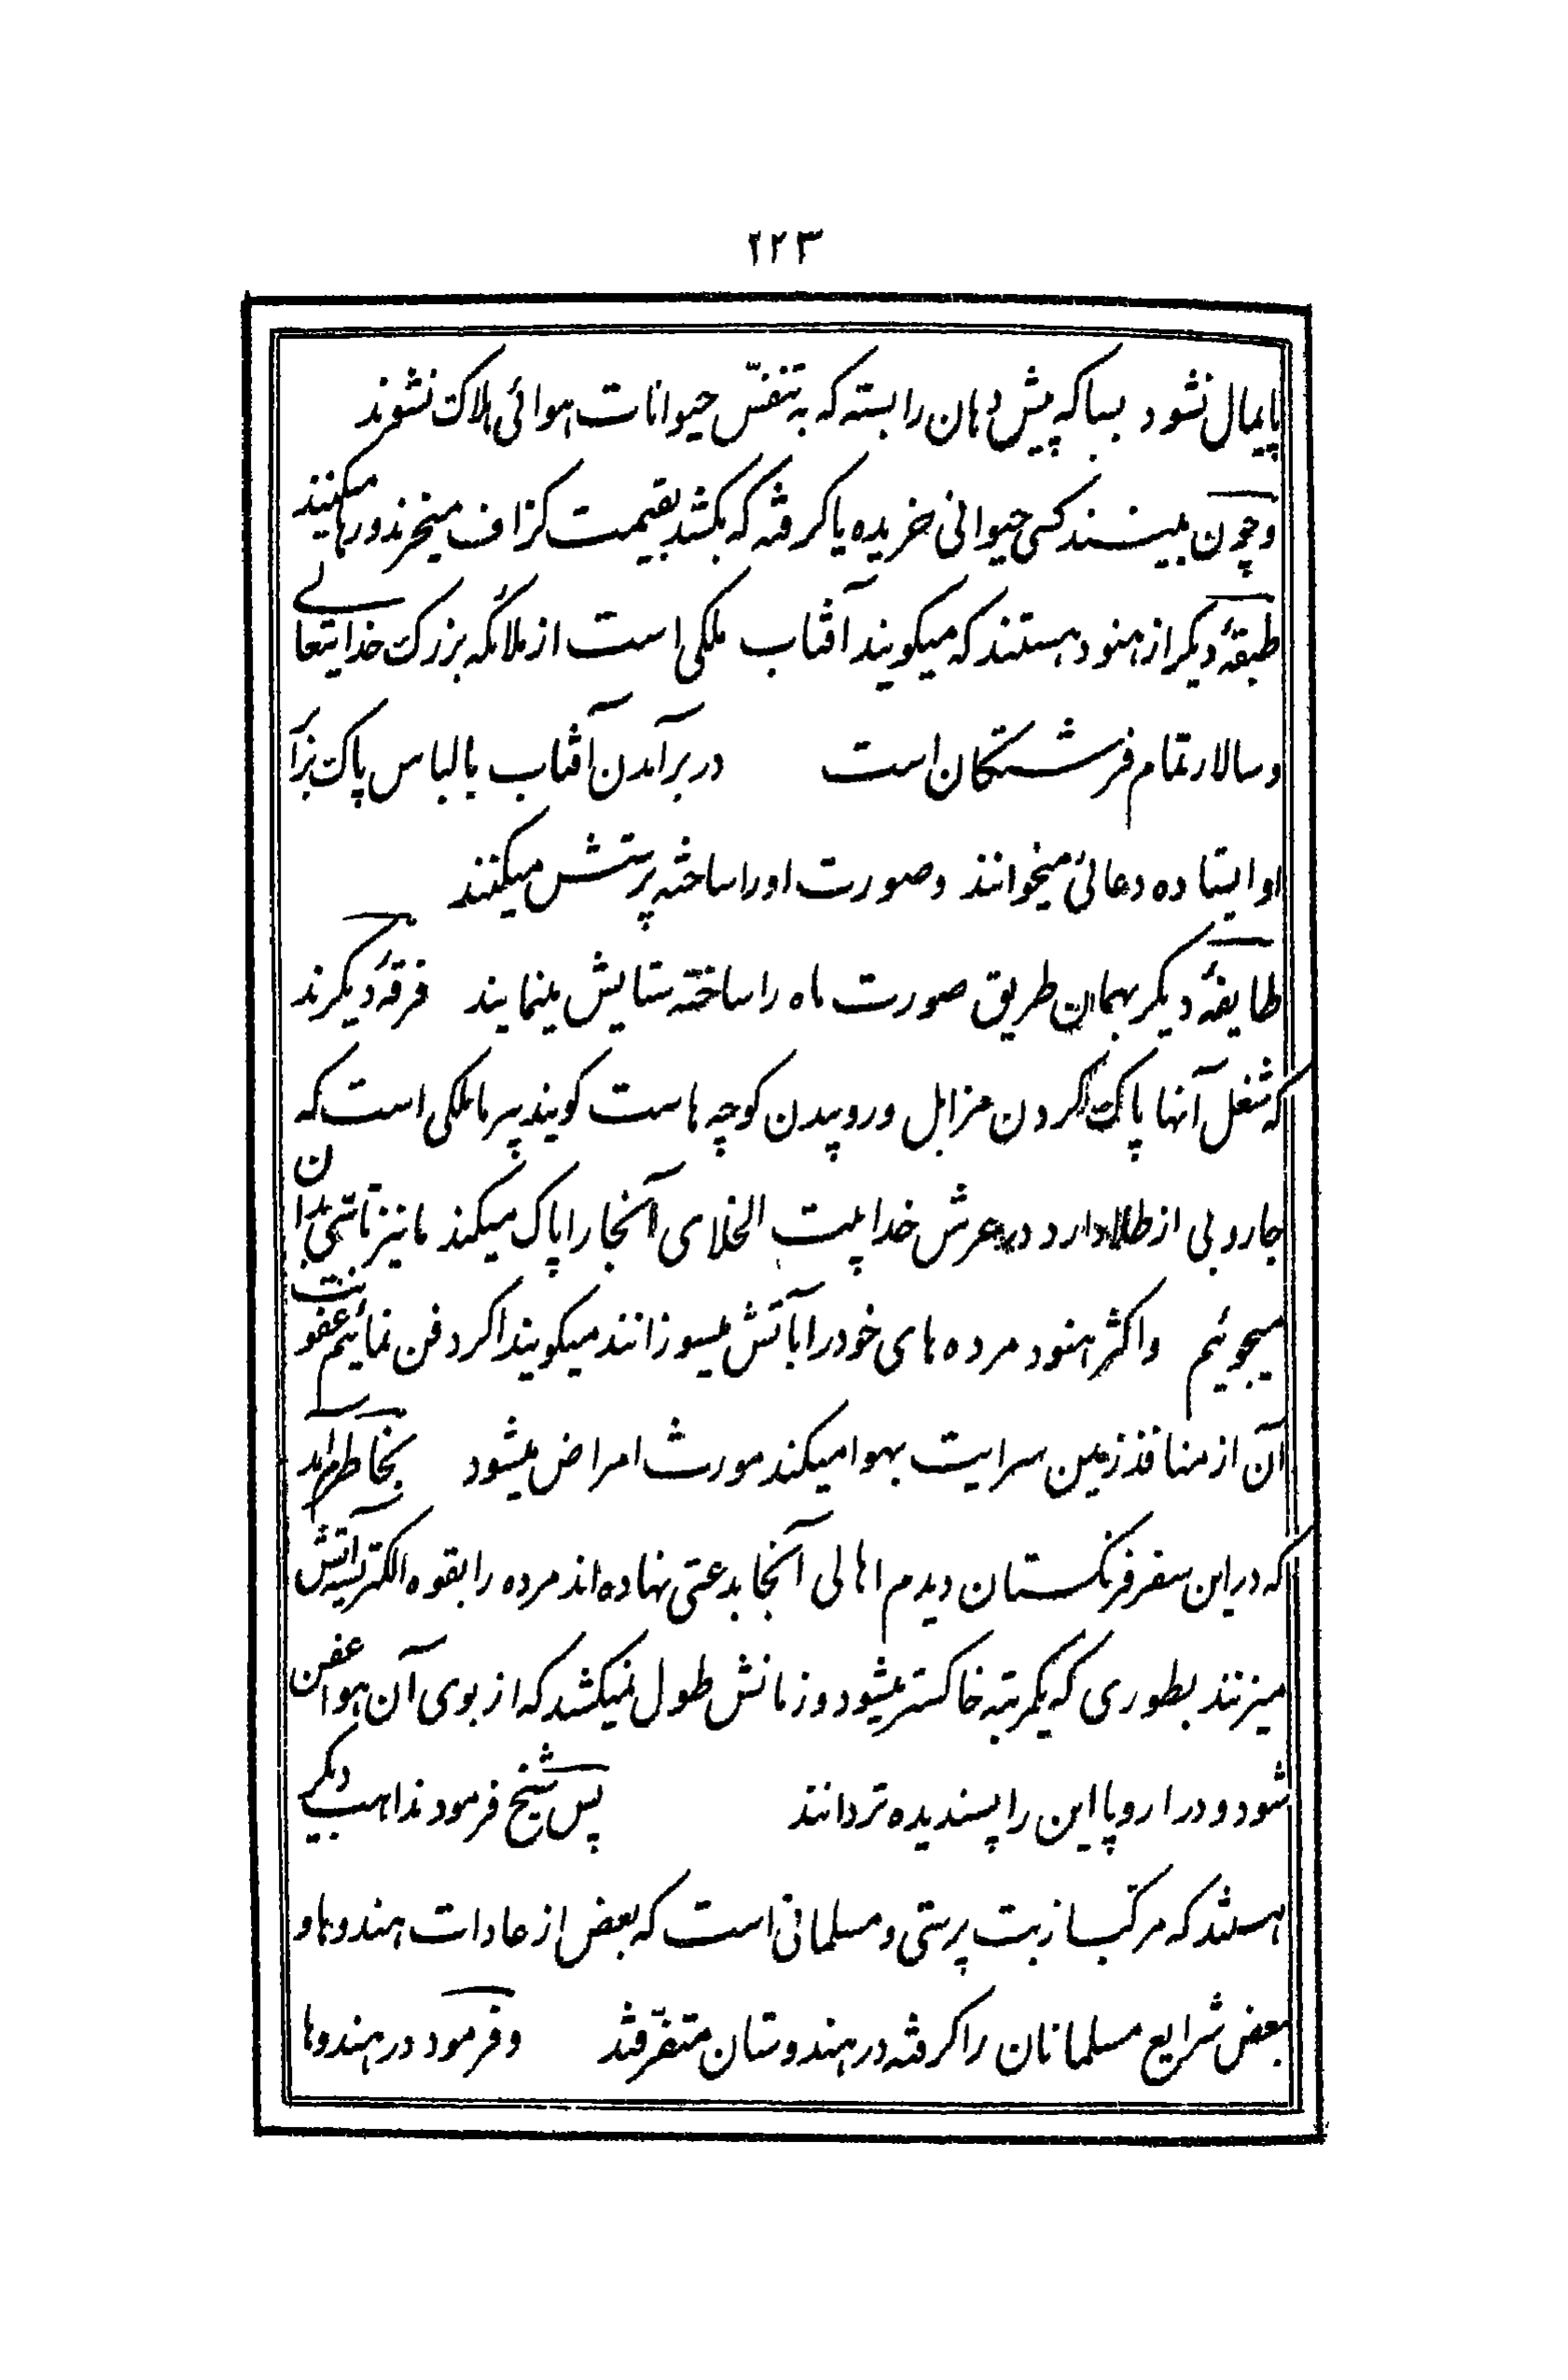 ۲۲۳
پایمال نشود بساکه پیش دهان را بسته که به تنفّس حیوانات هوائی هلاک نشوند
وچون ببینند کسی حیوانی خریده یا کرفته که بکشد بقیمت کزاف میخرند ورها میکنند
طبقهٔ دیکر از هنود هستند که میکویند آفتاب ملکی است از ملائکه بزرک خدایتعالی
وسالار تمام فرشتکان است در برآمدن آفتاب با لباس پاک برابر
او ایستاده دعائی میخوانند وصورت اورا ساخته پرستش میکنند
طایفهٔ دیکر بهمان طریق صورت ماه را ساخته ستایش مینمایند فرقهٔ دیکرند
که شغل آنها پاک کردن مزابل وروبیدن کوچه هاست کویند پیر ما ملکی است که
جاروبی از طلا دارد در عرش خدا بیت الخلای آنجا را پاک میکند ما نیز تاسّی بدان
میجوئیم واکثر هنود مرده های خودرا بآتش میسوزانند میکویند اکر دفن نمائیم عفونت
آن از منافذ زمین سرایت بهوا میکند مورث امراض میشود بخاطرم آمد
که در این سفر فرنکستان دیدم اهالی آنجا بدعتی نهاده اند مرده را بقوه الکتریسیته آتش
میزنند بطوری که یکمرتبه خاکستر میشود وزمانش طول نمیکشد که از بوی آن هوا عفن
شود ودر اروپا این را پسندیده تر دانند پس شیخ فرمود مذاهب دیکر
هستند که مرکب از بت پرستی ومسلمانی است که بعض از عادات هندوها و
بعض شرایع مسلمانان را کرفته در هندوستان متفرّقند وفرمود در هندوها